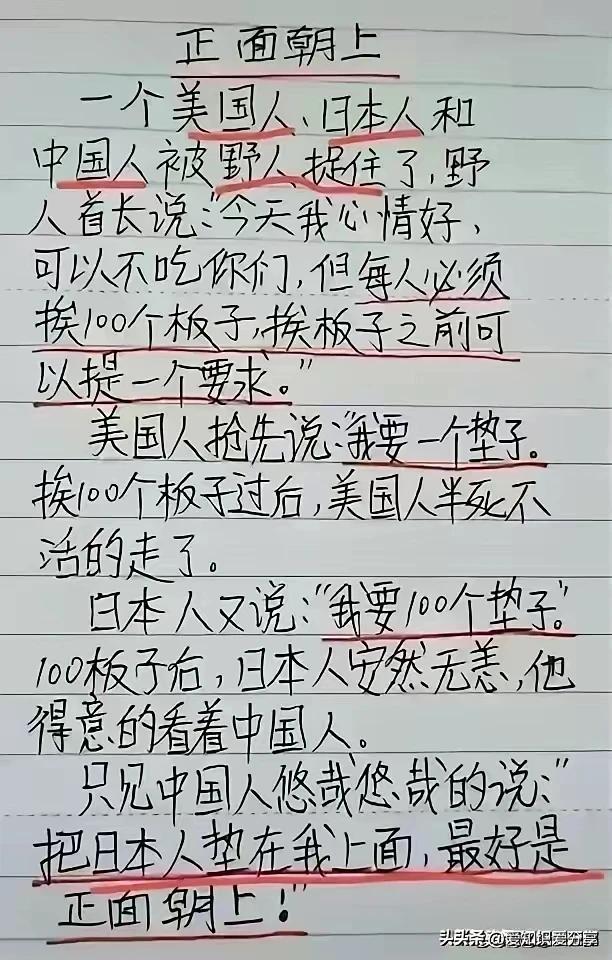 正面朝上
一个美国人、日本人和
中国人被野人捉住了,野
人首长说:“今天我心情好,
可以不吃你们,但每人必须
挨100个板子,挨板子之前可
以提一个要求。”
美国人抢先说:“我要一个垫子。
挨100个板子过后,美国人半死不
活的走了。
日本人又说:“我要100个垫子。”
100板子后,日本人安然无恙,他
得意的看着中国人。
只见中国人悠哉悠哉的说:“
把日本人垫在我上面,最好是
正面朝上!”
头条@爱知识爱分享